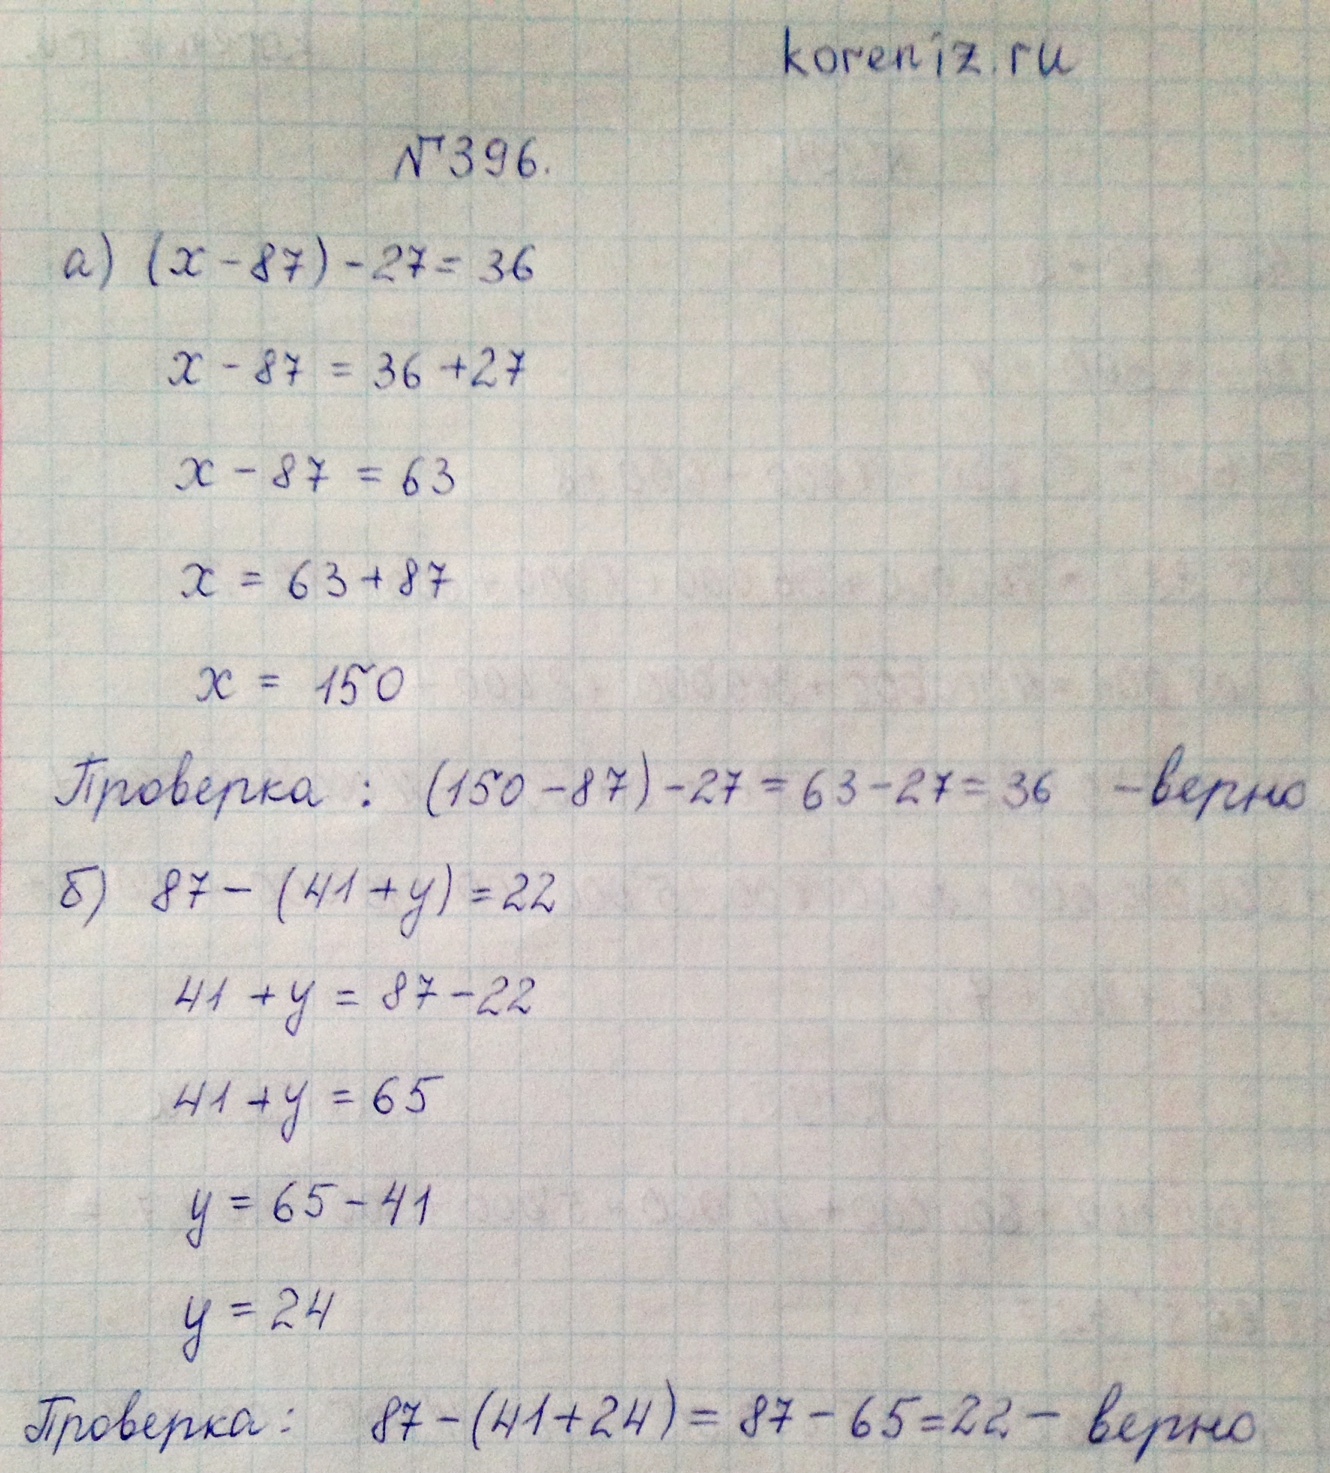 koreniz.ru
№396.
а) (x - 87) - 27 = 36
x - 87 = 36 + 27
x - 87 = 63
x = 63 + 87
x = 150
Проверка : (150 - 87) - 27 = 63 - 27 = 36 - верно
б) 87 - (41 + y) = 22
41 + y = 87 - 22
41 + y = 65
y = 65 - 41
y = 24
Проверка: 87 - (41 + 24) = 87 - 65 = 22 - верно